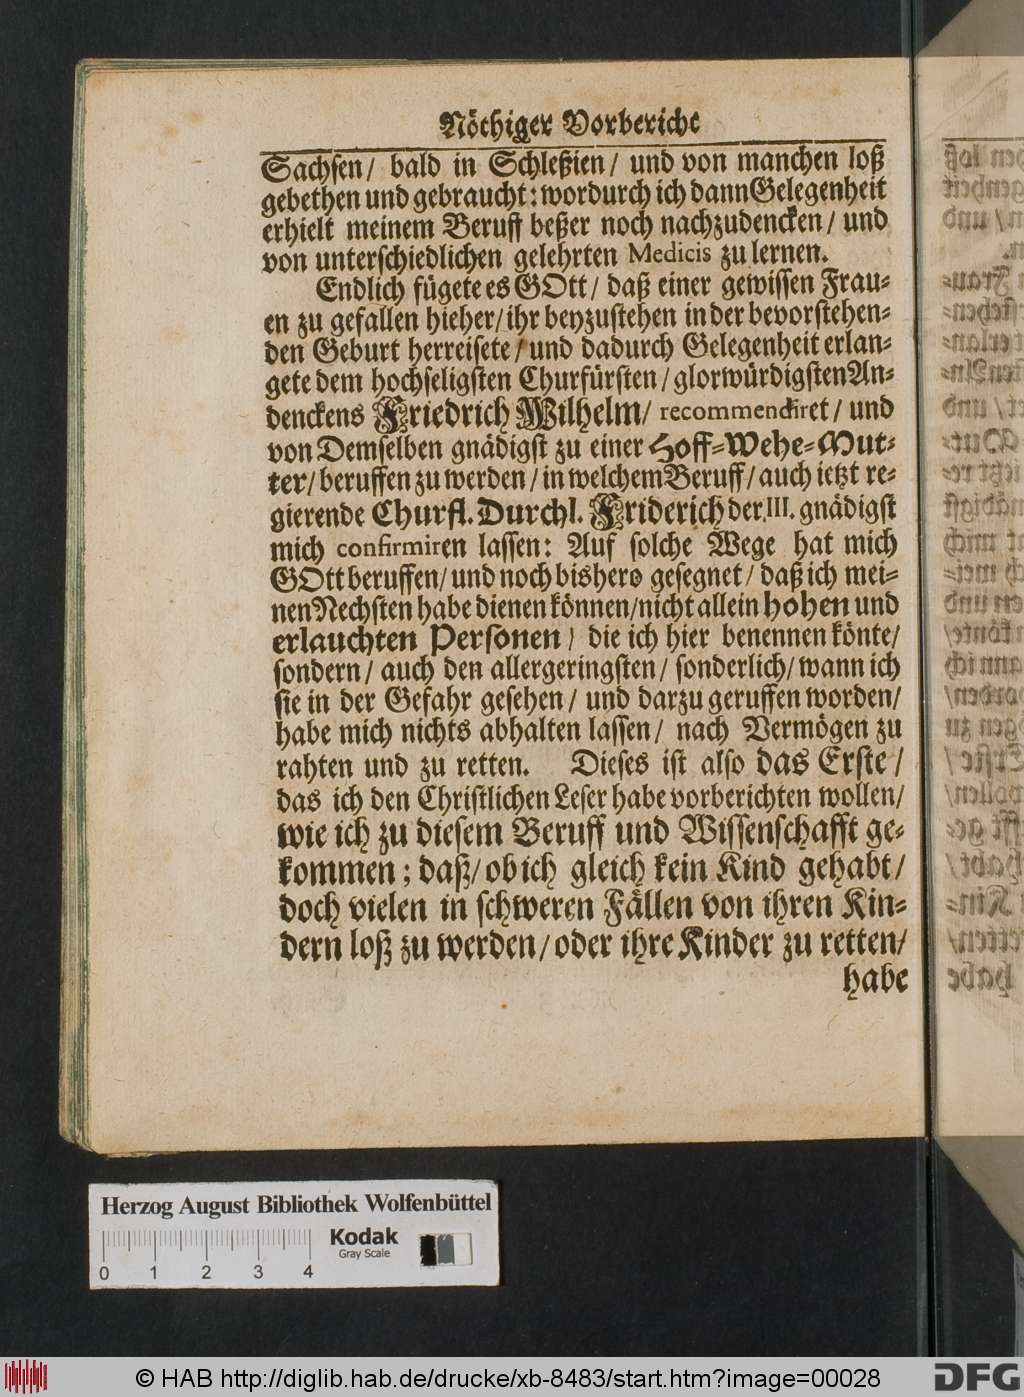 Nöthiger Vorbericht
Sachsen/ bald in Schleßien/ und von manchen loß
gebethen und gebraucht: wordurch ich dann Gelegenheit
erhielt meinem Beruff beßer noch nachzudencken/ und
von unterschiedlichen gelehrten Medicis zu lernen.
Endlich fügete es GOtt/ daß einer gewissen Frau-
en zu gefallen hieher/ ihr beyzustehen in der bevorstehen-
den Geburt herreisete/ und dadurch Gelegenheit erlan-
gete dem hochseligsten Churfürsten/ glorwürdigsten An-
denckens Friedrich Wilhelm/ recommendiret/ und
von Demselben gnädigst zu einer Hoff-Wehe-Mut-
ter/ beruffen zu werden/ in welchem Beruff/ auch ietzt re-
gierende Churfl. Durchl. Friderich der III. gnädigst
mich confirmiren lassen: Auf solche Wege hat mich
GOtt beruffen/ und noch bishero gesegnet/ daß ich mei-
nen Nechsten habe dienen können/ nicht allein hohen und
erlauchten Personen/ die ich hier benennen könte/
sondern/ auch den allergeringsten/ sonderlich/ wann ich
sie in der Gefahr gesehen/ und darzu geruffen worden/
habe mich nichts abhalten lassen/ nach Vermögen zu
rahten und zu retten. Dieses ist also das Erste/
das ich den Christlichen Leser habe vorberichten wollen/
wie ich zu diesem Beruff und Wissenschafft ge-
kommen; daß/ ob ich gleich kein Kind gehabt/
doch vielen in schweren Fällen von ihren Kin-
dern loß zu werden/ oder ihre Kinder zu retten/
habe
Herzog August Bibliothek Wolfenbüttel
Kodak
Gray Scale
0 1 2 3 4
© HAB http://diglib.hab.de/drucke/xb-8483/start.htm?image=00028
DFG